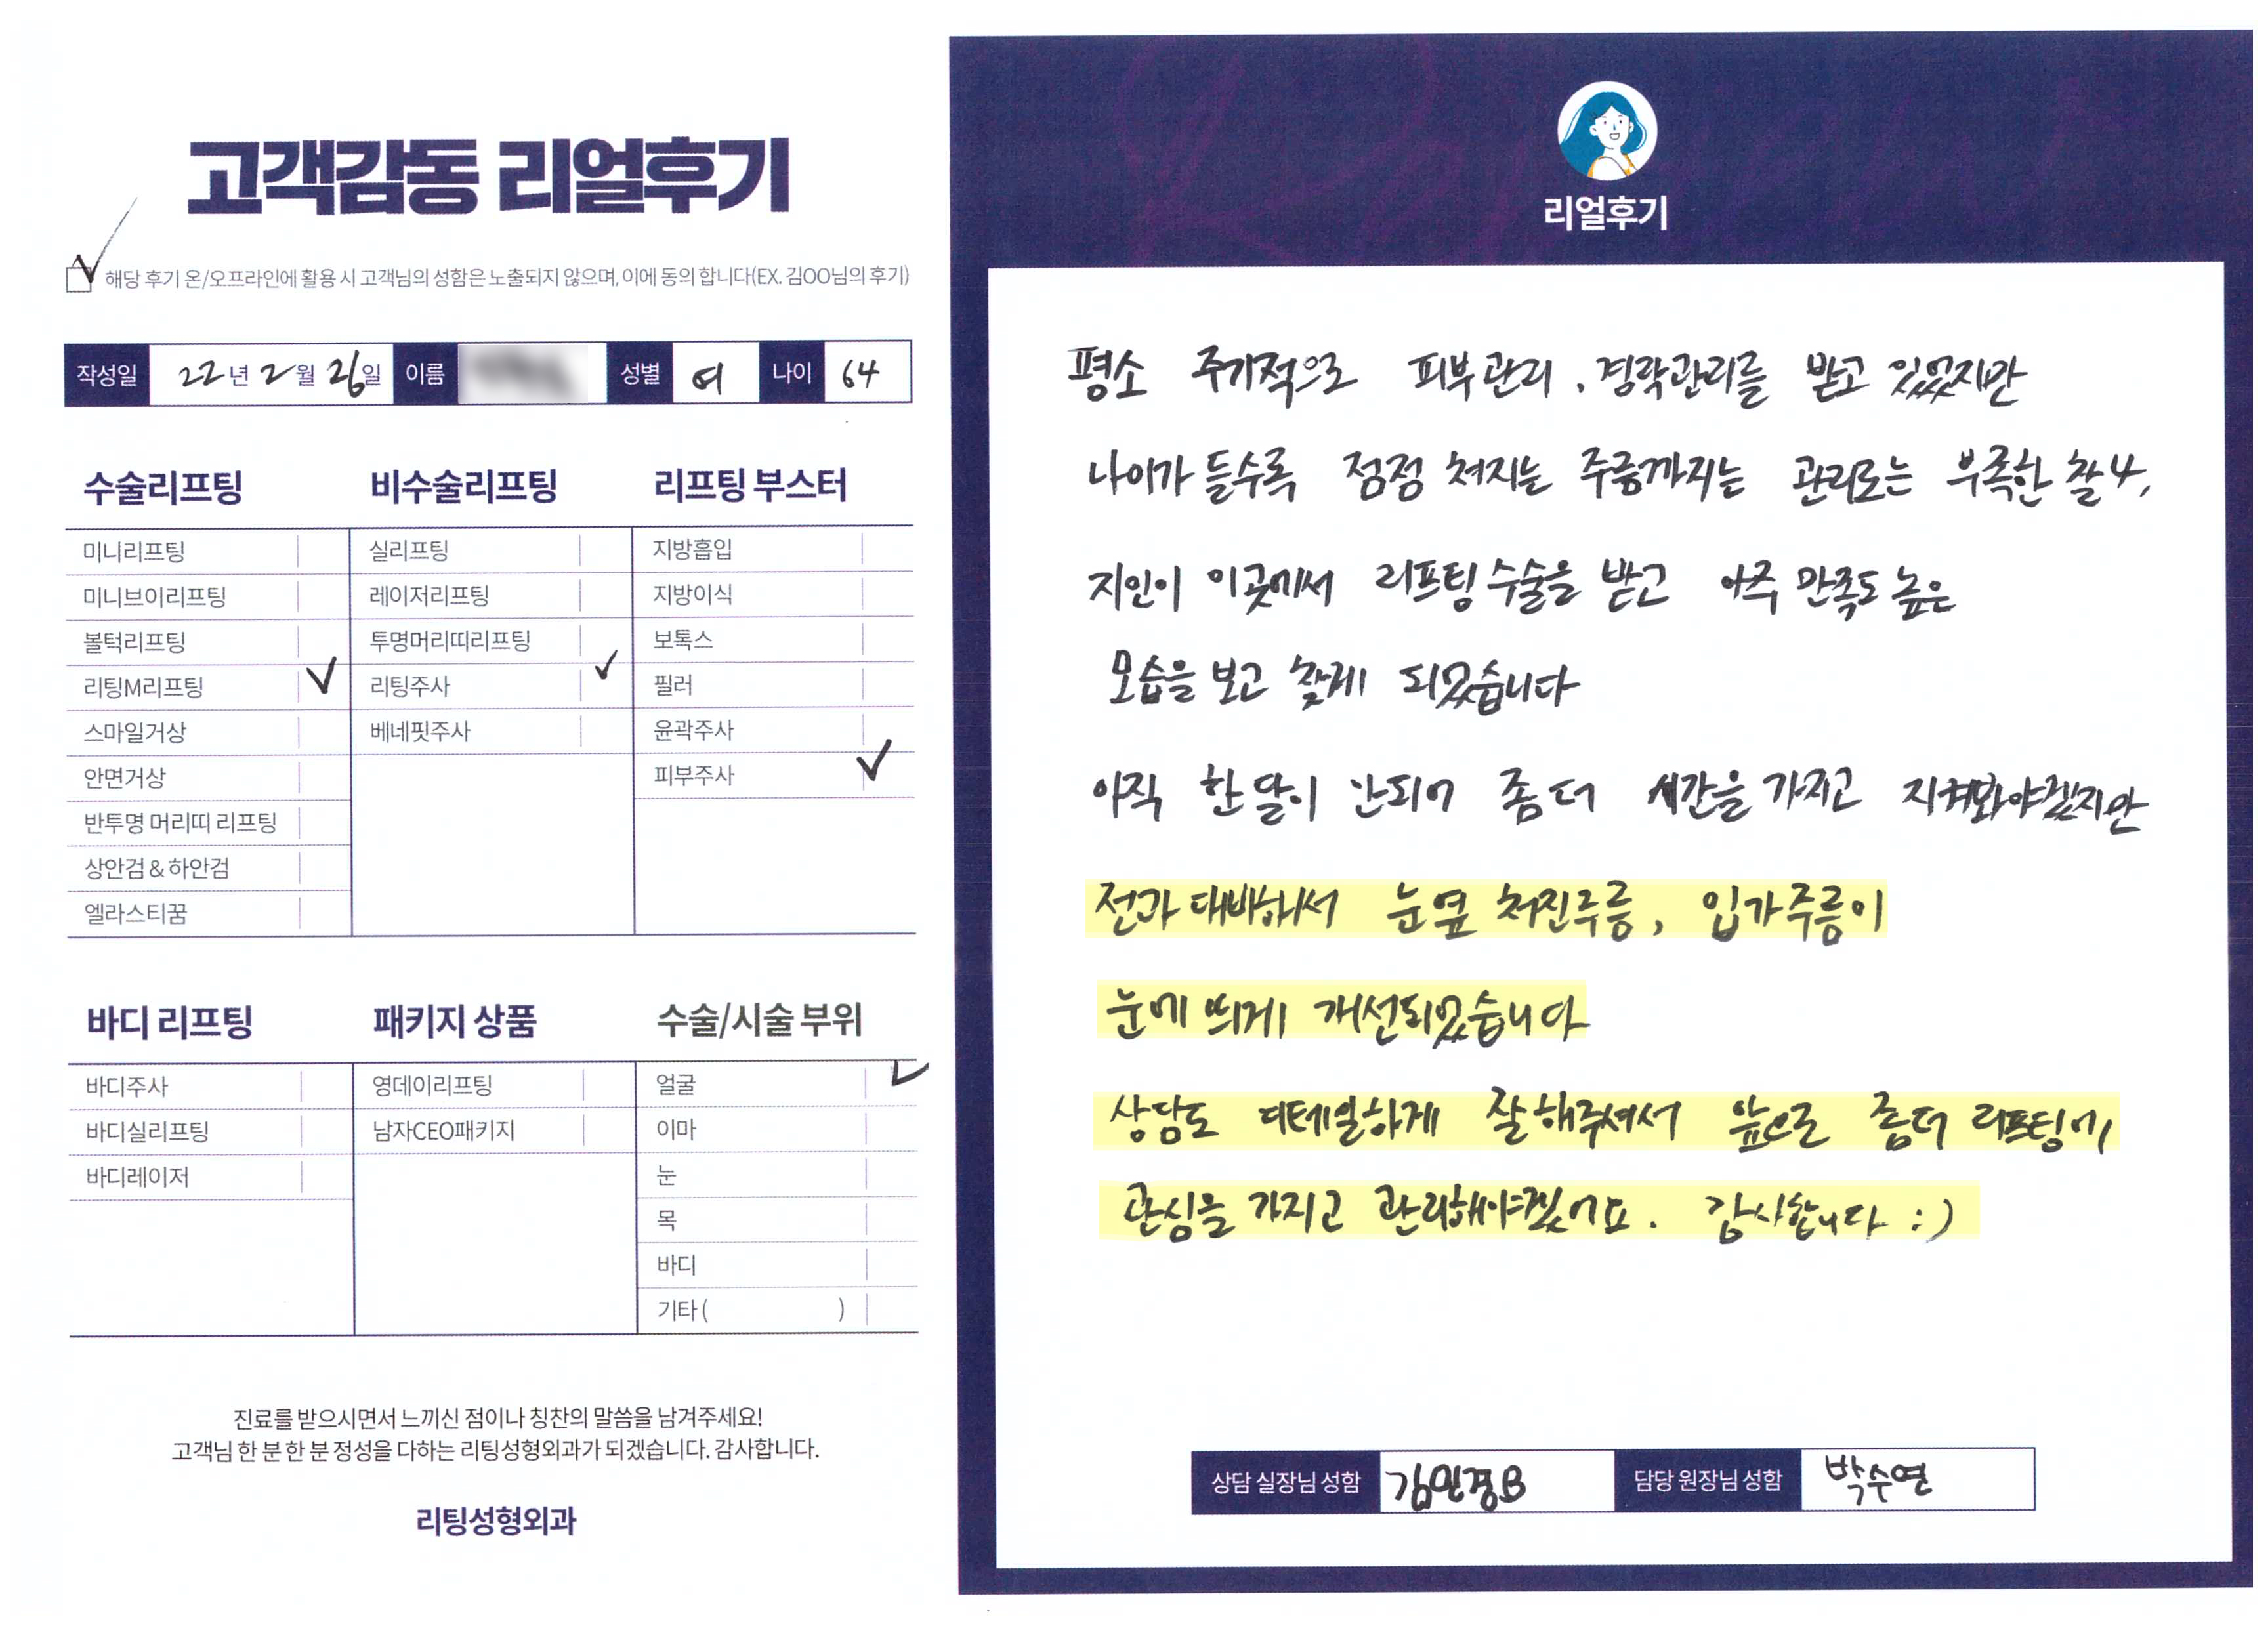 고객감동 리얼후기
해당 후기 온/오프라인에 활용 시 고객님의 성함은 노출되지 않으며, 이에 동의 합니다(EX. 김OO님의 후기)
작성일 22년 2월 26일 이름 성별 여 나이 64
수술리프팅
미니리프팅
미니브이리프팅
볼턱리프팅
리팅M리프팅
스마일거상
안면거상
반투명 머리띠 리프팅
상안검&하안검
엘라스티꿈
비수술리프팅
실리프팅
레이저리프팅
투명머리띠리프팅
리팅주사
베네핏주사
리프팅 부스터
지방흡입
지방이식
보톡스
필러
윤곽주사
피부주사
바디 리프팅
바디주사
바디실리프팅
바디레이저
패키지 상품
영데이리프팅
남자CEO패키지
수술/시술 부위
얼굴
이마
눈
목
바디
기타 ( )
진료를 받으시면서 느끼신 점이나 칭찬의 말씀을 남겨주세요!
고객님 한 분 한 분 정성을 다하는 리팅성형외과가 되겠습니다. 감사합니다.
리팅성형외과
리얼후기
평소 주기적으로 피부관리, 경락관리를 받고 있었지만
나이가 들수록 점점 쳐지는 주름까지는 관리로는 부족한 찰나,
지인이 이곳에서 리프팅수술을 받고 아주 만족도 높은
모습을 보고 찾게 되었습니다
아직 한달이 안되어 좀더 시간을 가지고 지켜봐야겠지만
전과 대비해서 눈옆 쳐진주름, 입가주름이
눈에 띄게 개선되었습니다
상담도 디테일하게 잘해주셔서 앞으로 좀더 리프팅에
관심을 가지고 관리해야겠어요. 감사합니다 :)
상담 실장님 성함 김민경B 담당 원장님 성함 박수연